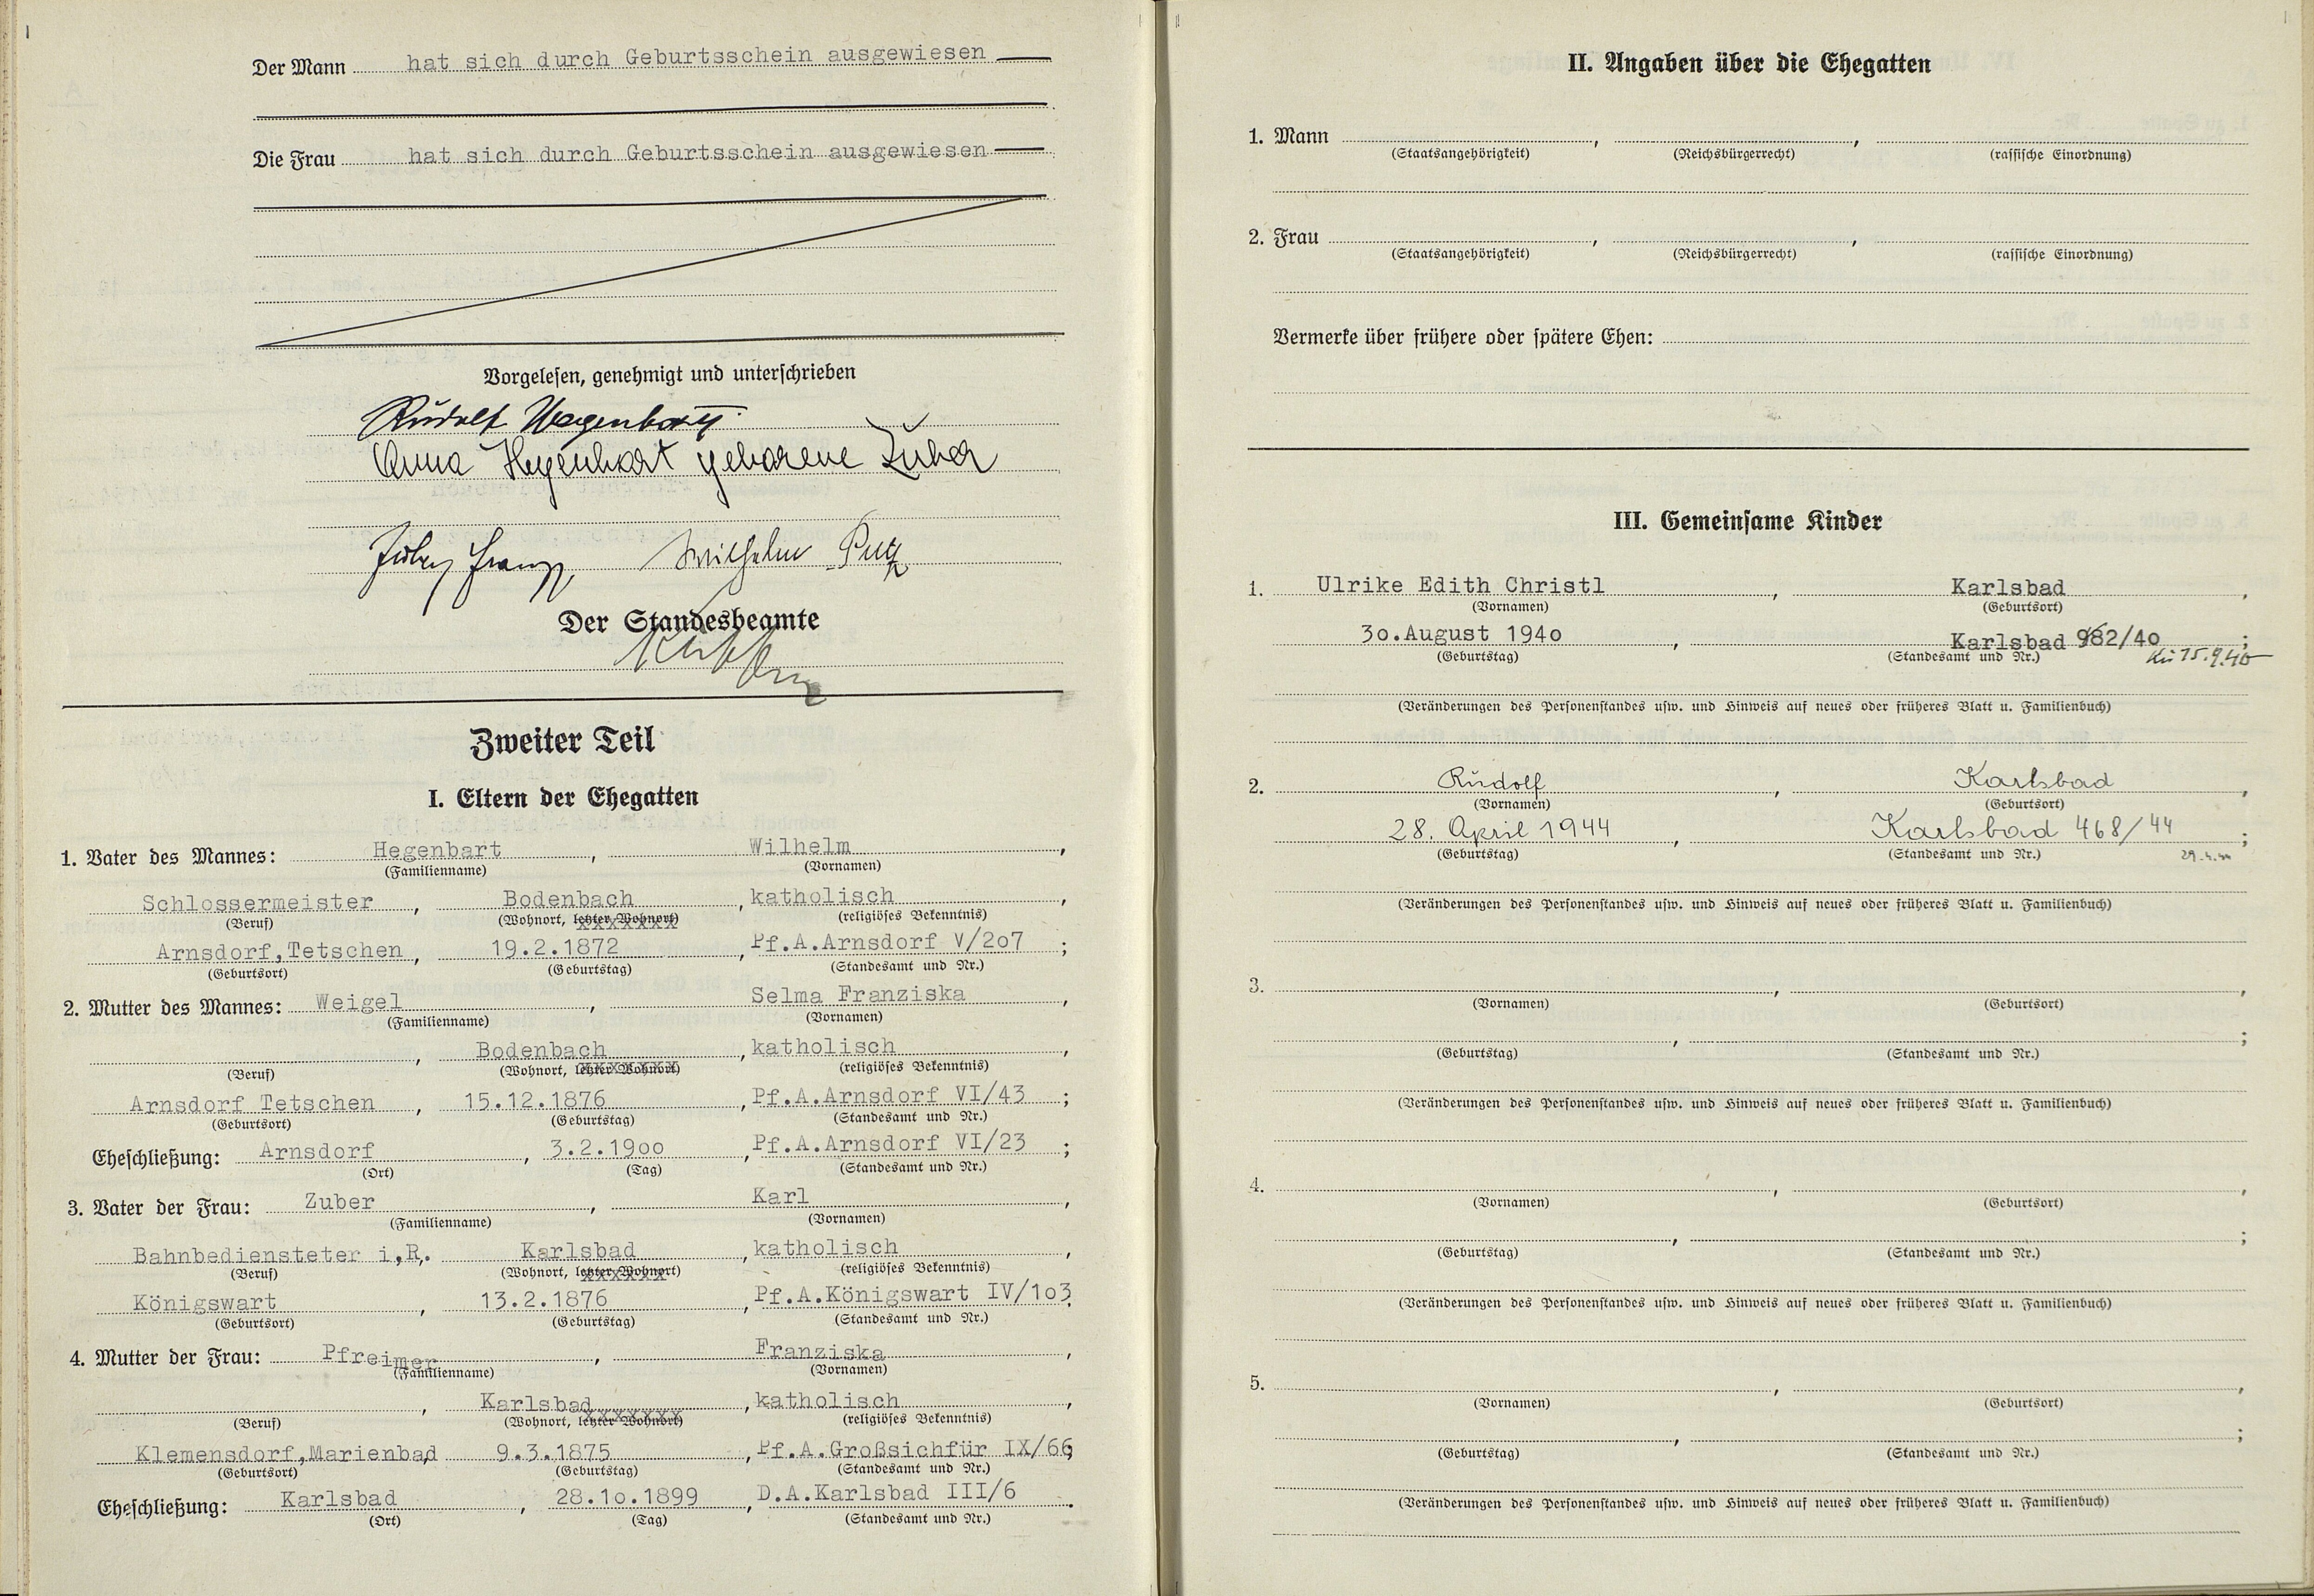 Der Mann hat sich durch Geburtsschein ausgewiesen
Die Frau hat sich durch Geburtsschein ausgewiesen
Vorgelesen, genehmigt und unterschrieben
Rudolf Hegenbart
Anna Hegenbart geborene Zuber
Zuber Franz, Wilhelm
Der Standesbeamte
Zweiter Teil
I. Eltern der Ehegatten
1. Vater des Mannes: Hegenbart, Wilhelm,
(Familienname) (Vornamen)
Schlossermeister, Bodenbach, katholisch,
(Beruf) (Wohnort, letzter Wohnort) (religiöses Bekenntnis)
Arnsdorf,Tetschen, 19.2.1872, Pf.A.Arnsdorf V/2o7;
(Geburtsort) (Geburtstag) (Standesamt und Nr.)
2. Mutter des Mannes: Weigel, Selma Franziska,
(Familienname) (Vornamen)
, Bodenbach, katholisch,
(Beruf) (Wohnort, letzter Wohnort) (religiöses Bekenntnis)
Arnsdorf Tetschen, 15.12.1876, Pf.A.Arnsdorf VI/43;
(Geburtsort) (Geburtstag) (Standesamt und Nr.)
Eheschließung: Arnsdorf, 3.2.19oo, Pf.A.Arnsdorf VI/23;
(Ort) (Tag) (Standesamt und Nr.)
3. Vater der Frau: Zuber, Karl,
(Familienname) (Vornamen)
Bahnbediensteter i.R., Karlsbad, katholisch,
(Beruf) (Wohnort, letzter Wohnort) (religiöses Bekenntnis)
Königswart, 13.2.1876, Pf.A.Königswart IV/1o3;
(Geburtsort) (Geburtstag) (Standesamt und Nr.)
4. Mutter der Frau: Pfreimer, Franziska,
(Familienname) (Vornamen)
, Karlsbad, katholisch,
(Beruf) (Wohnort, letzter Wohnort) (religiöses Bekenntnis)
Klemensdorf,Marienbad, 9.3.1875, Pf.A.Großsichfür IX/66;
(Geburtsort) (Geburtstag) (Standesamt und Nr.)
Eheschließung: Karlsbad, 28.1o.1899, D.A.Karlsbad III/6.
(Ort) (Tag) (Standesamt und Nr.)
II. Angaben über die Ehegatten
1. Mann , ,
(Staatsangehörigkeit) (Reichsbürgerrecht) (rassische Einordnung)
2. Frau , ,
(Staatsangehörigkeit) (Reichsbürgerrecht) (rassische Einordnung)
Vermerke über frühere oder spätere Ehen:
III. Gemeinsame Kinder
1. Ulrike Edith Christl, Karlsbad,
(Vornamen) (Geburtsort)
3o.August 194o, Karlsbad 982/4o;
(Geburtstag) (Standesamt und Nr.) 15.9.40
(Veränderungen des Personenstandes usw. und Hinweis auf neues oder früheres Blatt u. Familienbuch)
2. Rudolf, Karlsbad,
(Vornamen) (Geburtsort)
28. April 1944, Karlsbad 468/44;
(Geburtstag) (Standesamt und Nr.) 29.4.44
(Veränderungen des Personenstandes usw. und Hinweis auf neues oder früheres Blatt u. Familienbuch)
3. , ,
(Vornamen) (Geburtsort)
, ;
(Geburtstag) (Standesamt und Nr.)
(Veränderungen des Personenstandes usw. und Hinweis auf neues oder früheres Blatt u. Familienbuch)
4. , ,
(Vornamen) (Geburtsort)
, ;
(Geburtstag) (Standesamt und Nr.)
(Veränderungen des Personenstandes usw. und Hinweis auf neues oder früheres Blatt u. Familienbuch)
5. , ,
(Vornamen) (Geburtsort)
, ;
(Geburtstag) (Standesamt und Nr.)
(Veränderungen des Personenstandes usw. und Hinweis auf neues oder früheres Blatt u. Familienbuch)